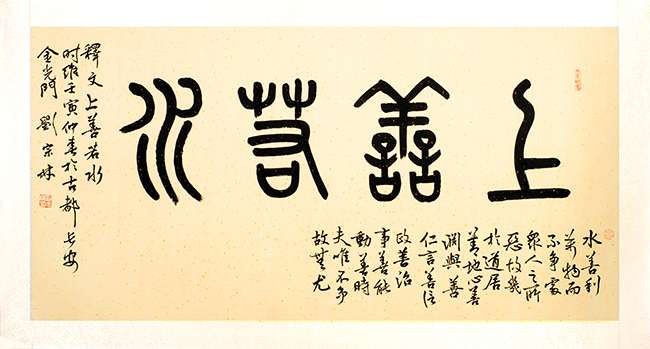 上善若水
水善利
萬物而
不争處
衆人之所
惡故幾
於道居
善地心善
淵與善
仁言善信
政善治
事善能
動善時
夫唯不争
故無尤
釋文上善若水
时维壬寅仲春於古都长安
金光門劉宗林